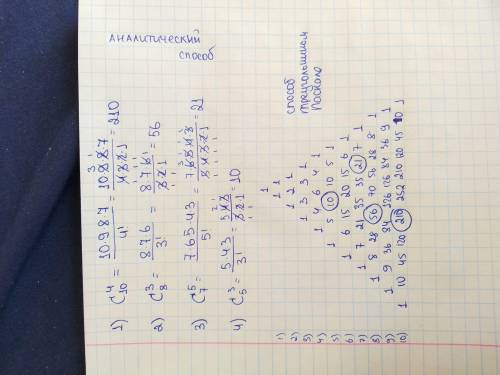 аналитический
способ
1) C⁴₁₀ = 10·9·8·7 / 4! = 10·9·8·7 / 4·3·2·1 = 210
2) C³₈ = 8·7·6 / 3! = 8·7·6 / 3·2·1 = 56
3) C⁵₇ = 7·6·5·4·3 / 5! = 7·6·5·4·3 / 5·4·3·2·1 = 21
4) C³₅ = 5·4·3 / 3! = 5·4·3 / 3·2·1 = 10
способ
треугольником
Паскаля
1
1) 1 1
2) 1 2 1
3) 1 3 3 1
4) 1 4 6 4 1
5) 1 5 10 10 5 1
6) 1 6 15 20 15 6 1
7) 1 7 21 35 35 21 7 1
8) 1 8 28 56 70 56 28 8 1
9) 1 9 36 84 126 126 84 36 9 1
10) 1 10 45 120 210 252 210 120 45 10 1